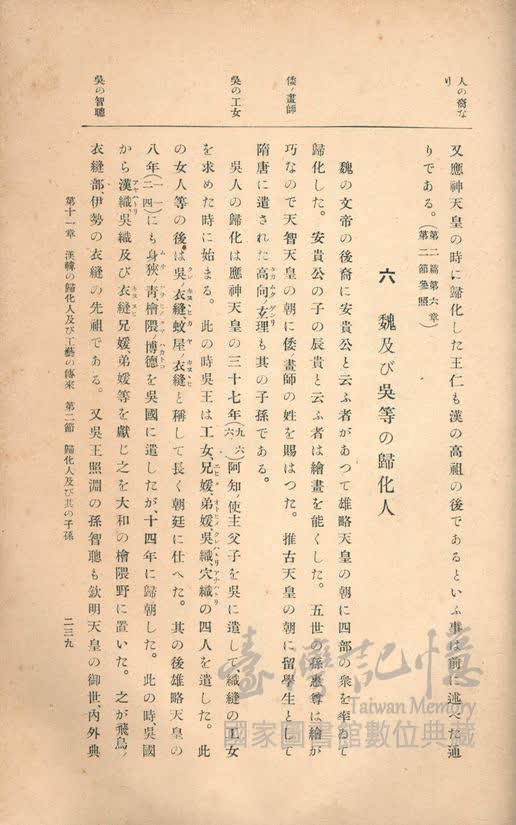 人の裔な
り
又應神天皇の時に歸化した王仁も漢の高祖の後であるといふ事は前に述べた通
りである。(第二篇第六章第二節參照)
六 魏及び吳等の歸化人
魏の文帝の後裔に安貴公と云ふ者があつて雄略天皇の朝に四部の衆を率ゐて
歸化した。安貴公の子の辰貴と云ふ者は繪畫を能くした。五世の孫惠尊は繪が
倭ノ畫師
巧なので天智天皇の朝に倭ノ畫師の姓を賜はつた。推古天皇の朝に留學生として
隋唐に遣された高向ノ玄理も其の子孫である。
吳の工女
吳人の歸化は應神天皇の三十七年(九六六)阿知ノ使主父子を吳に遣して織縫の工女
を求めた時に始まる。此の時吳王は工女、兄媛、弟媛、吳織、穴織の四人を遣した。此
の女人等の後は吳ノ衣縫、蚊屋ノ衣縫と稱して長く朝廷に仕へた。其の後雄略天皇の
八年(一一二四)にも身狹ノ靑、檜隈ノ博德を吳國に遣したが、十四年に歸朝した。此の時、吳國
から漢織、吳織及び衣縫兄媛、弟媛等を獻じ之を大和の檜隈野に置いた。之が飛鳥ノ
吳の智聰
衣縫部、伊勢の衣縫の先祖である。又吳王照淵の孫智聰も欽明天皇の御世、內外典
第十一章 漢韓の歸化人及び工藝の傳來 第二節 歸化人及び其の子孫
二三九
臺灣記憶
Taiwan Memory
國家圖書館數位典藏